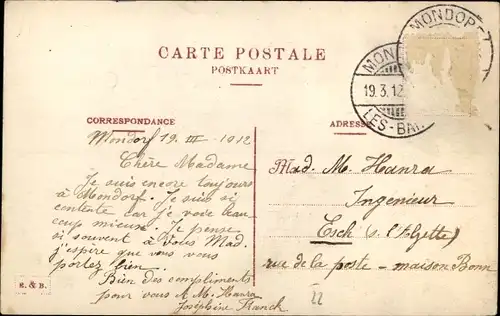 CARTE POSTALE
POSTKAART
MONDORF
MON
19.3.12
LES-BA
CORRESPONDANCE
ADRESSE
Mondorf 19 III - 1912
Chère Madame
Je suis encore toujours
à Mondorf. Je suis si
contente car je vois beau
coup mieux. Je pense
si souvent à Vous Mad.
j'espère que vous vous
portez bien
Bien des compliments
pour vous & M. Hanra
Joséphine Franck
Mad. M. Hanra
Ingénieur
Esch (s. l'Alzette)
rue de la poste - maison Bonn
E. & B.
22